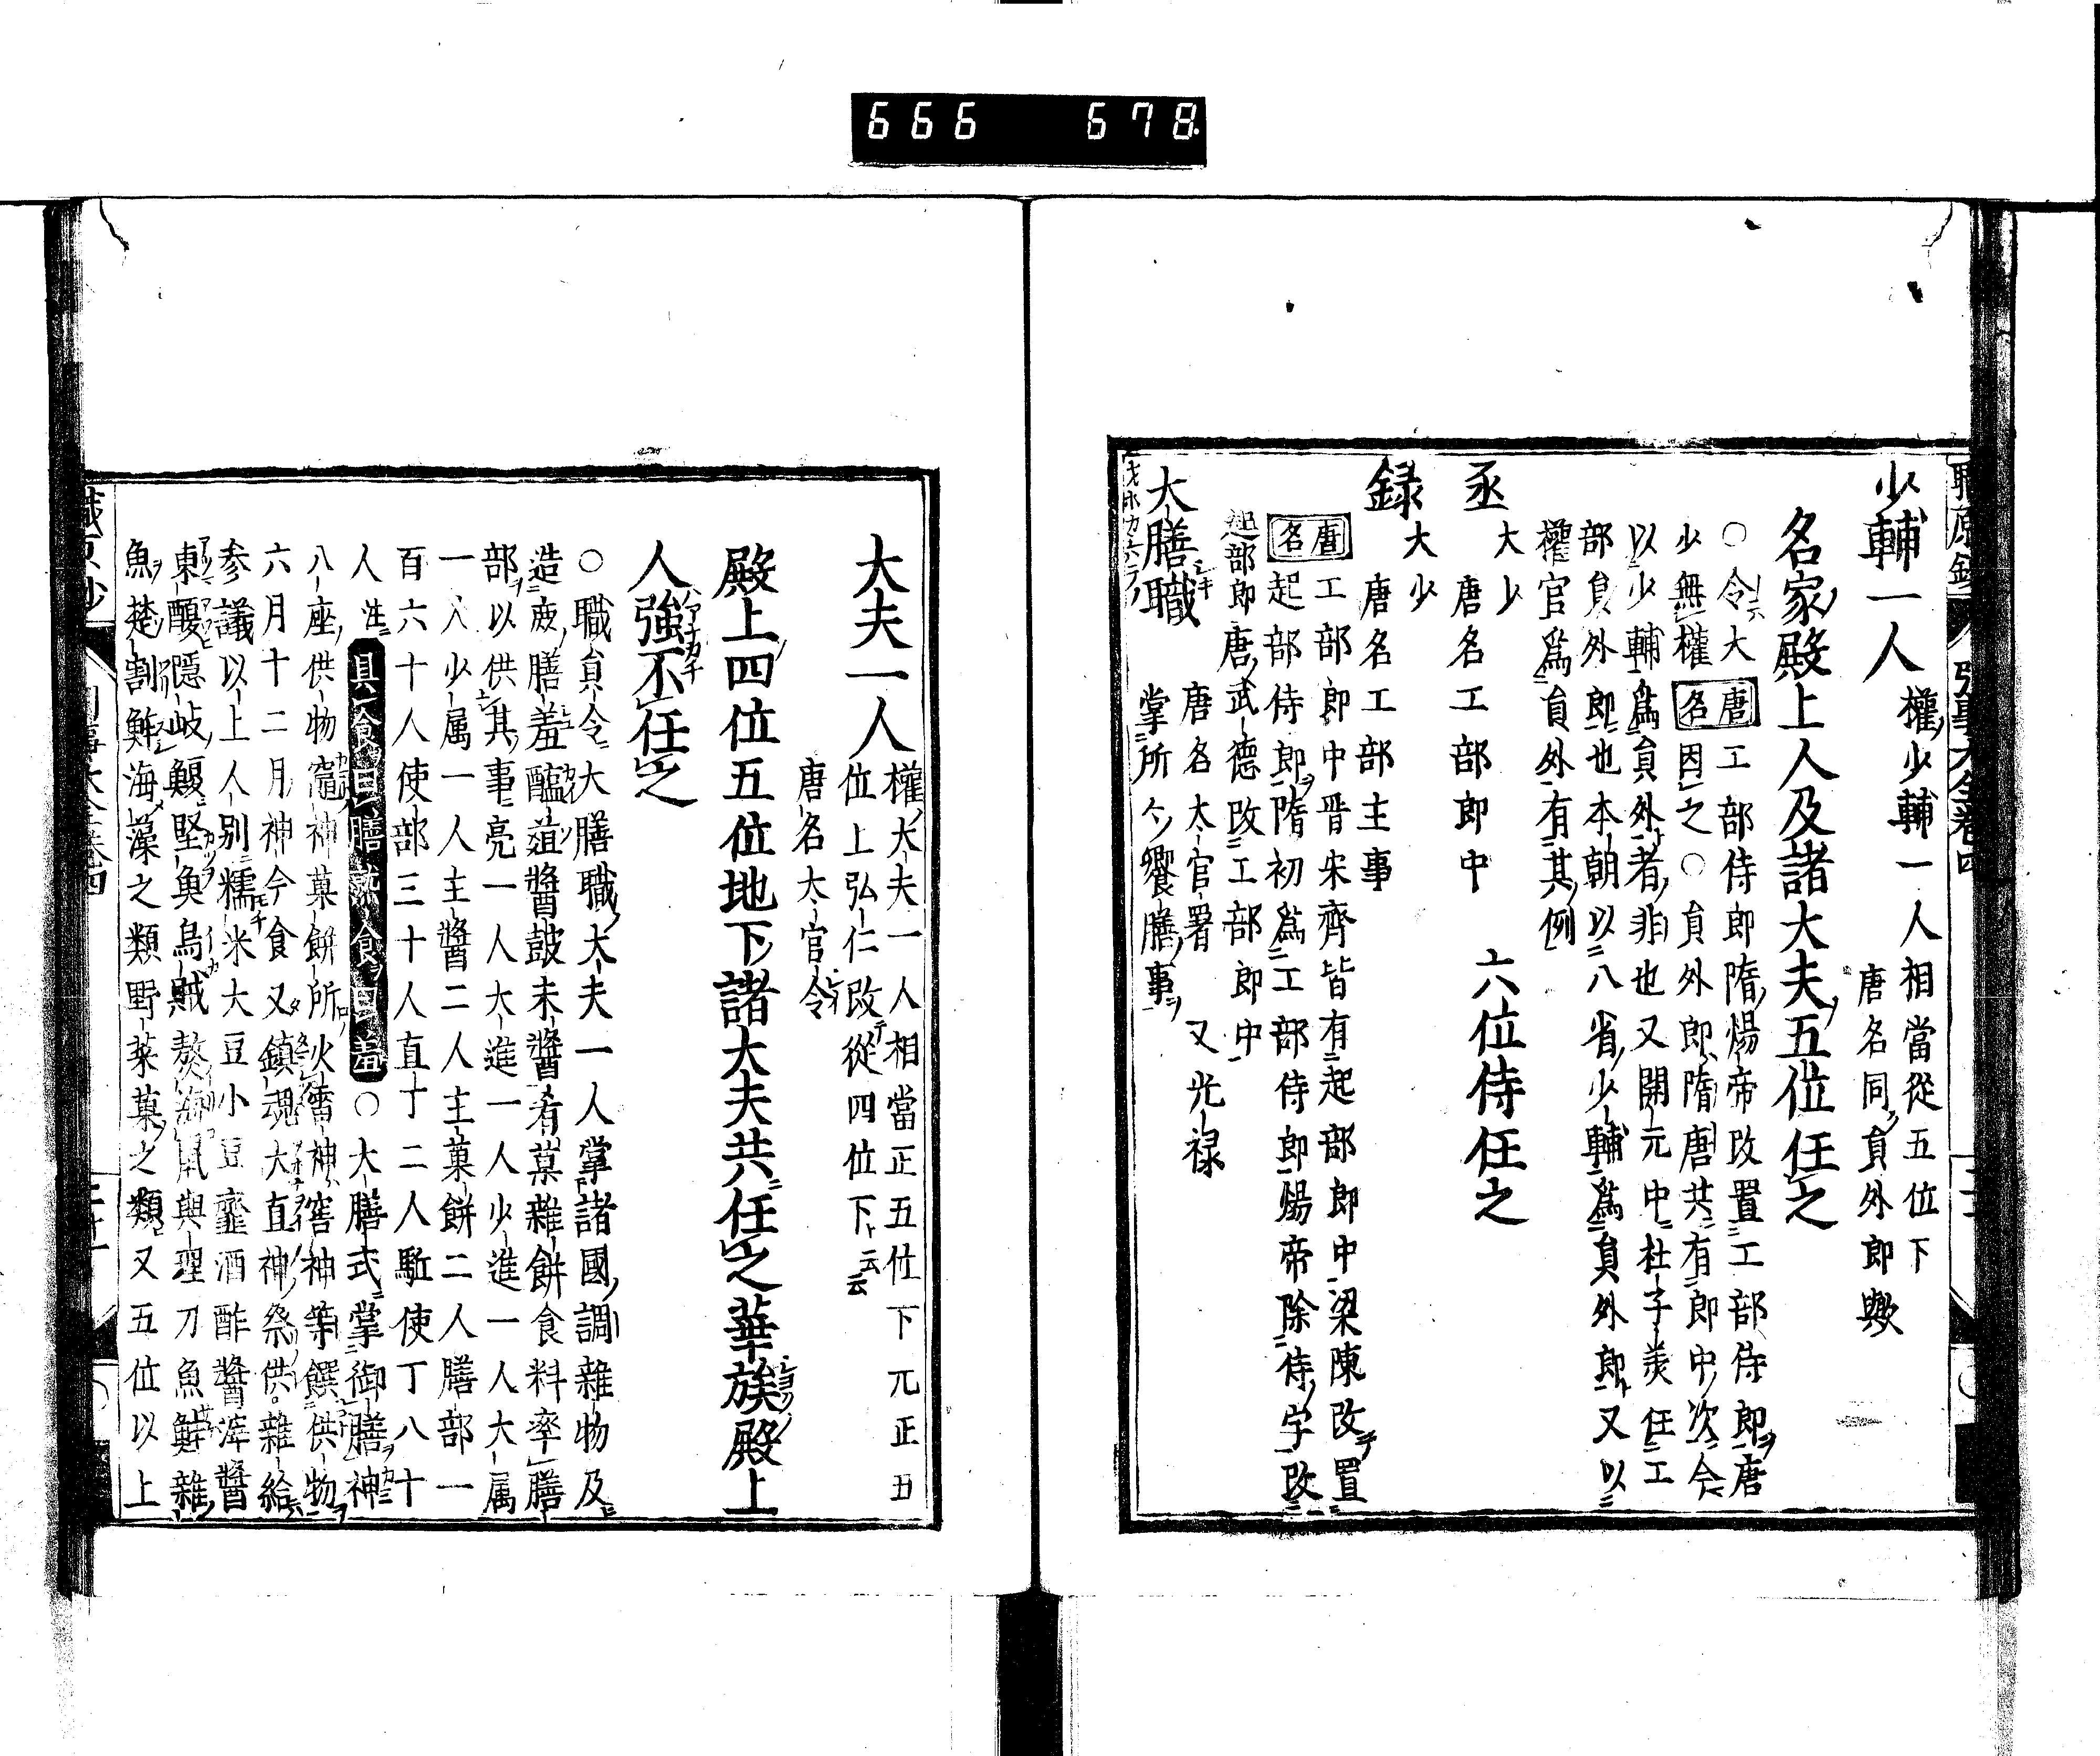 666 678
少輔一人
權少輔一人相當從五位下
唐名同員外郎歟
名家殿上人及諸大夫五位任之
○令大工部侍郎隋煬帝改置工部侍郎唐
少無權唐名因之○員外郎隋唐共有郎中次令
以少輔爲員外者非也又開元中杜子美任工
部員外郎也本朝以八省少輔爲員外郎又以
權官爲員外有其例
丞
大少
唐名工部郎中
六位侍任之
録
大少
唐名工部主事
唐名
工部郎中晋宋齊皆有起部郎中梁陳改置
起部侍郎隋初爲工部侍郎煬帝除侍字改
起部郎唐武德改工部郎中
大膳職
唐名大官署 又光禄
掌所々饗膳事
大夫一人
權大夫一人相當正五位下元正五
位上弘仁改從四位下云云
唐名大官令
殿上四位五位地下諸大夫共任之華族殿上
人強不任之
○職員令大膳職大夫一人掌諸國調雜物及
造庶膳羞醢葅醬豉未醬肴菓雜餅食料率膳
部以供其事亮一人大進一人少進一人大属
一人少属一人主醬二人主菓餅二人膳部一
百六十人使部三十人直丁二人駈使丁八十
人注具食曰膳熟食曰羞○大膳式掌御膳神
八座供物竃神菓餅所火雷神窖神等饌供物
六月十二月神今食又鎮魂大直神祭供雜給
参議以上人別糯米大豆小豆虀酒酢醬滓醬
東鰒隱岐鰒堅魚烏賊熬海鼠與理刀魚鮮雜
魚楚割鮓海藻之類野菜菓之類又五位以上